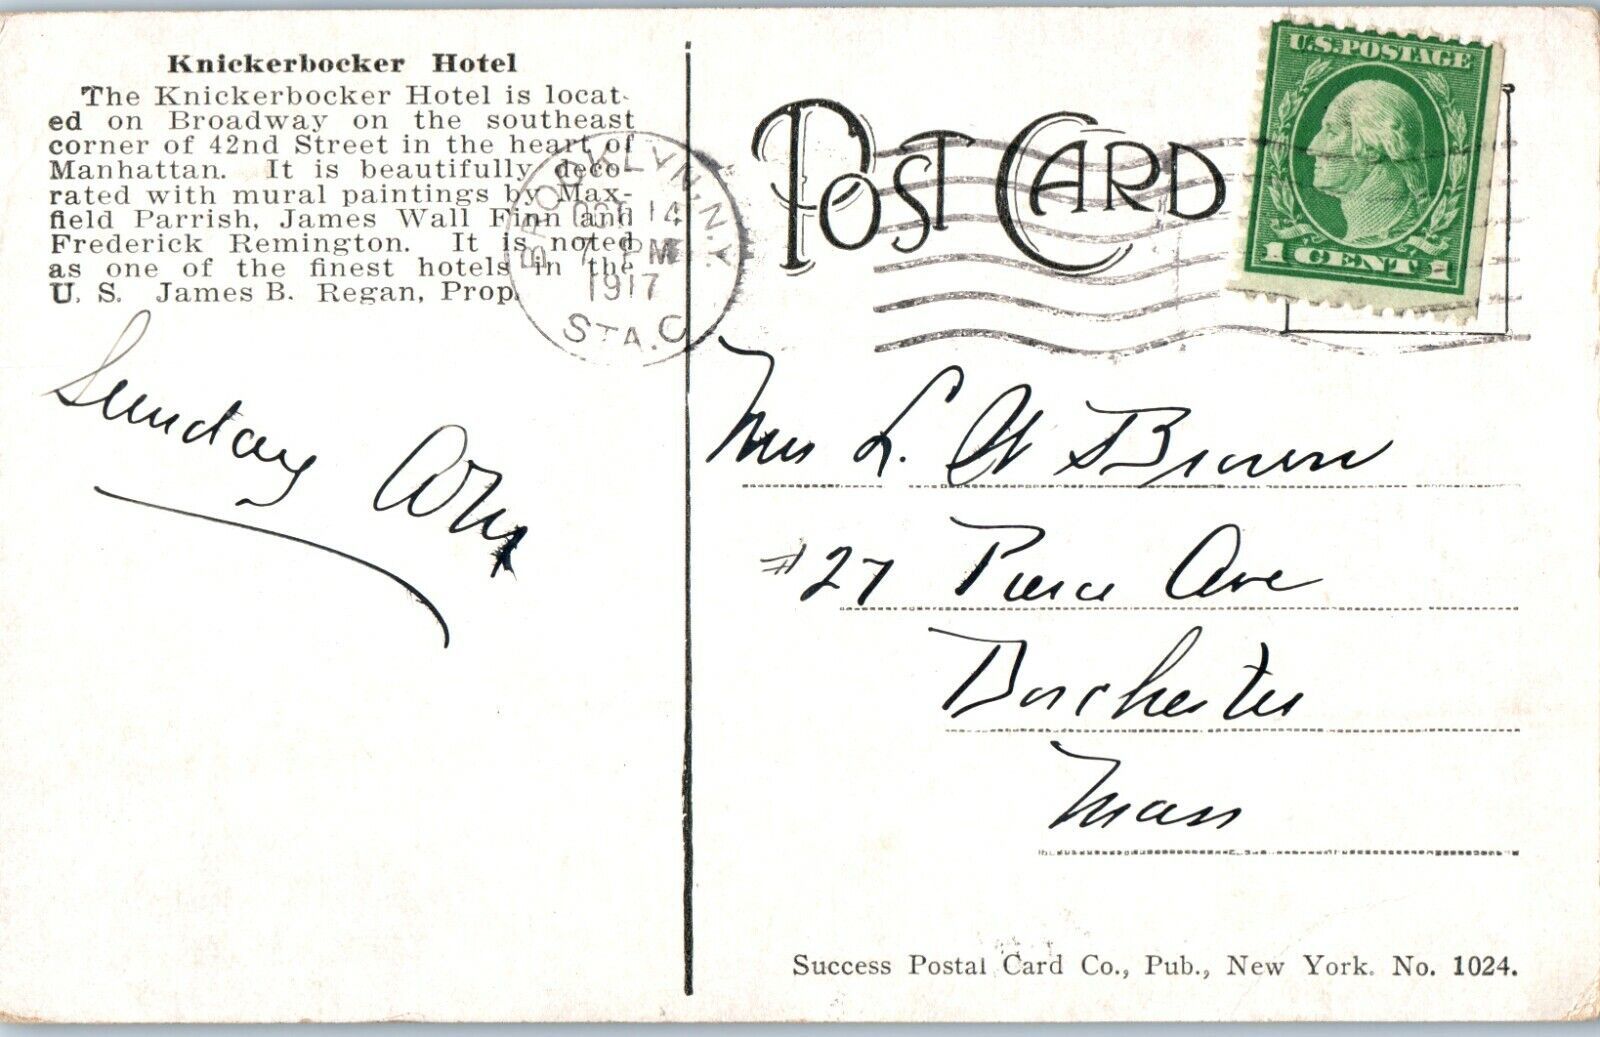 Knickerbocker Hotel
The Knickerbocker Hotel is locat-
ed on Broadway on the southeast
corner of 42nd Street in the heart of
Manhattan. It is beautifully deco-
rated with mural paintings by Max-
field Parrish, James Wall Finn and
Frederick Remington. It is noted
as one of the finest hotels in the
U. S. James B. Regan, Prop.
Sunday
POST CARD
BROOKLYN, N.Y.
OCT 14
7 PM
1917
STA. C
U.S. POSTAGE
1 CENT 1
Mrs L. W Brown
#27 Pierce Ave
Dorchester
Mass
Success Postal Card Co., Pub., New York. No. 1024.